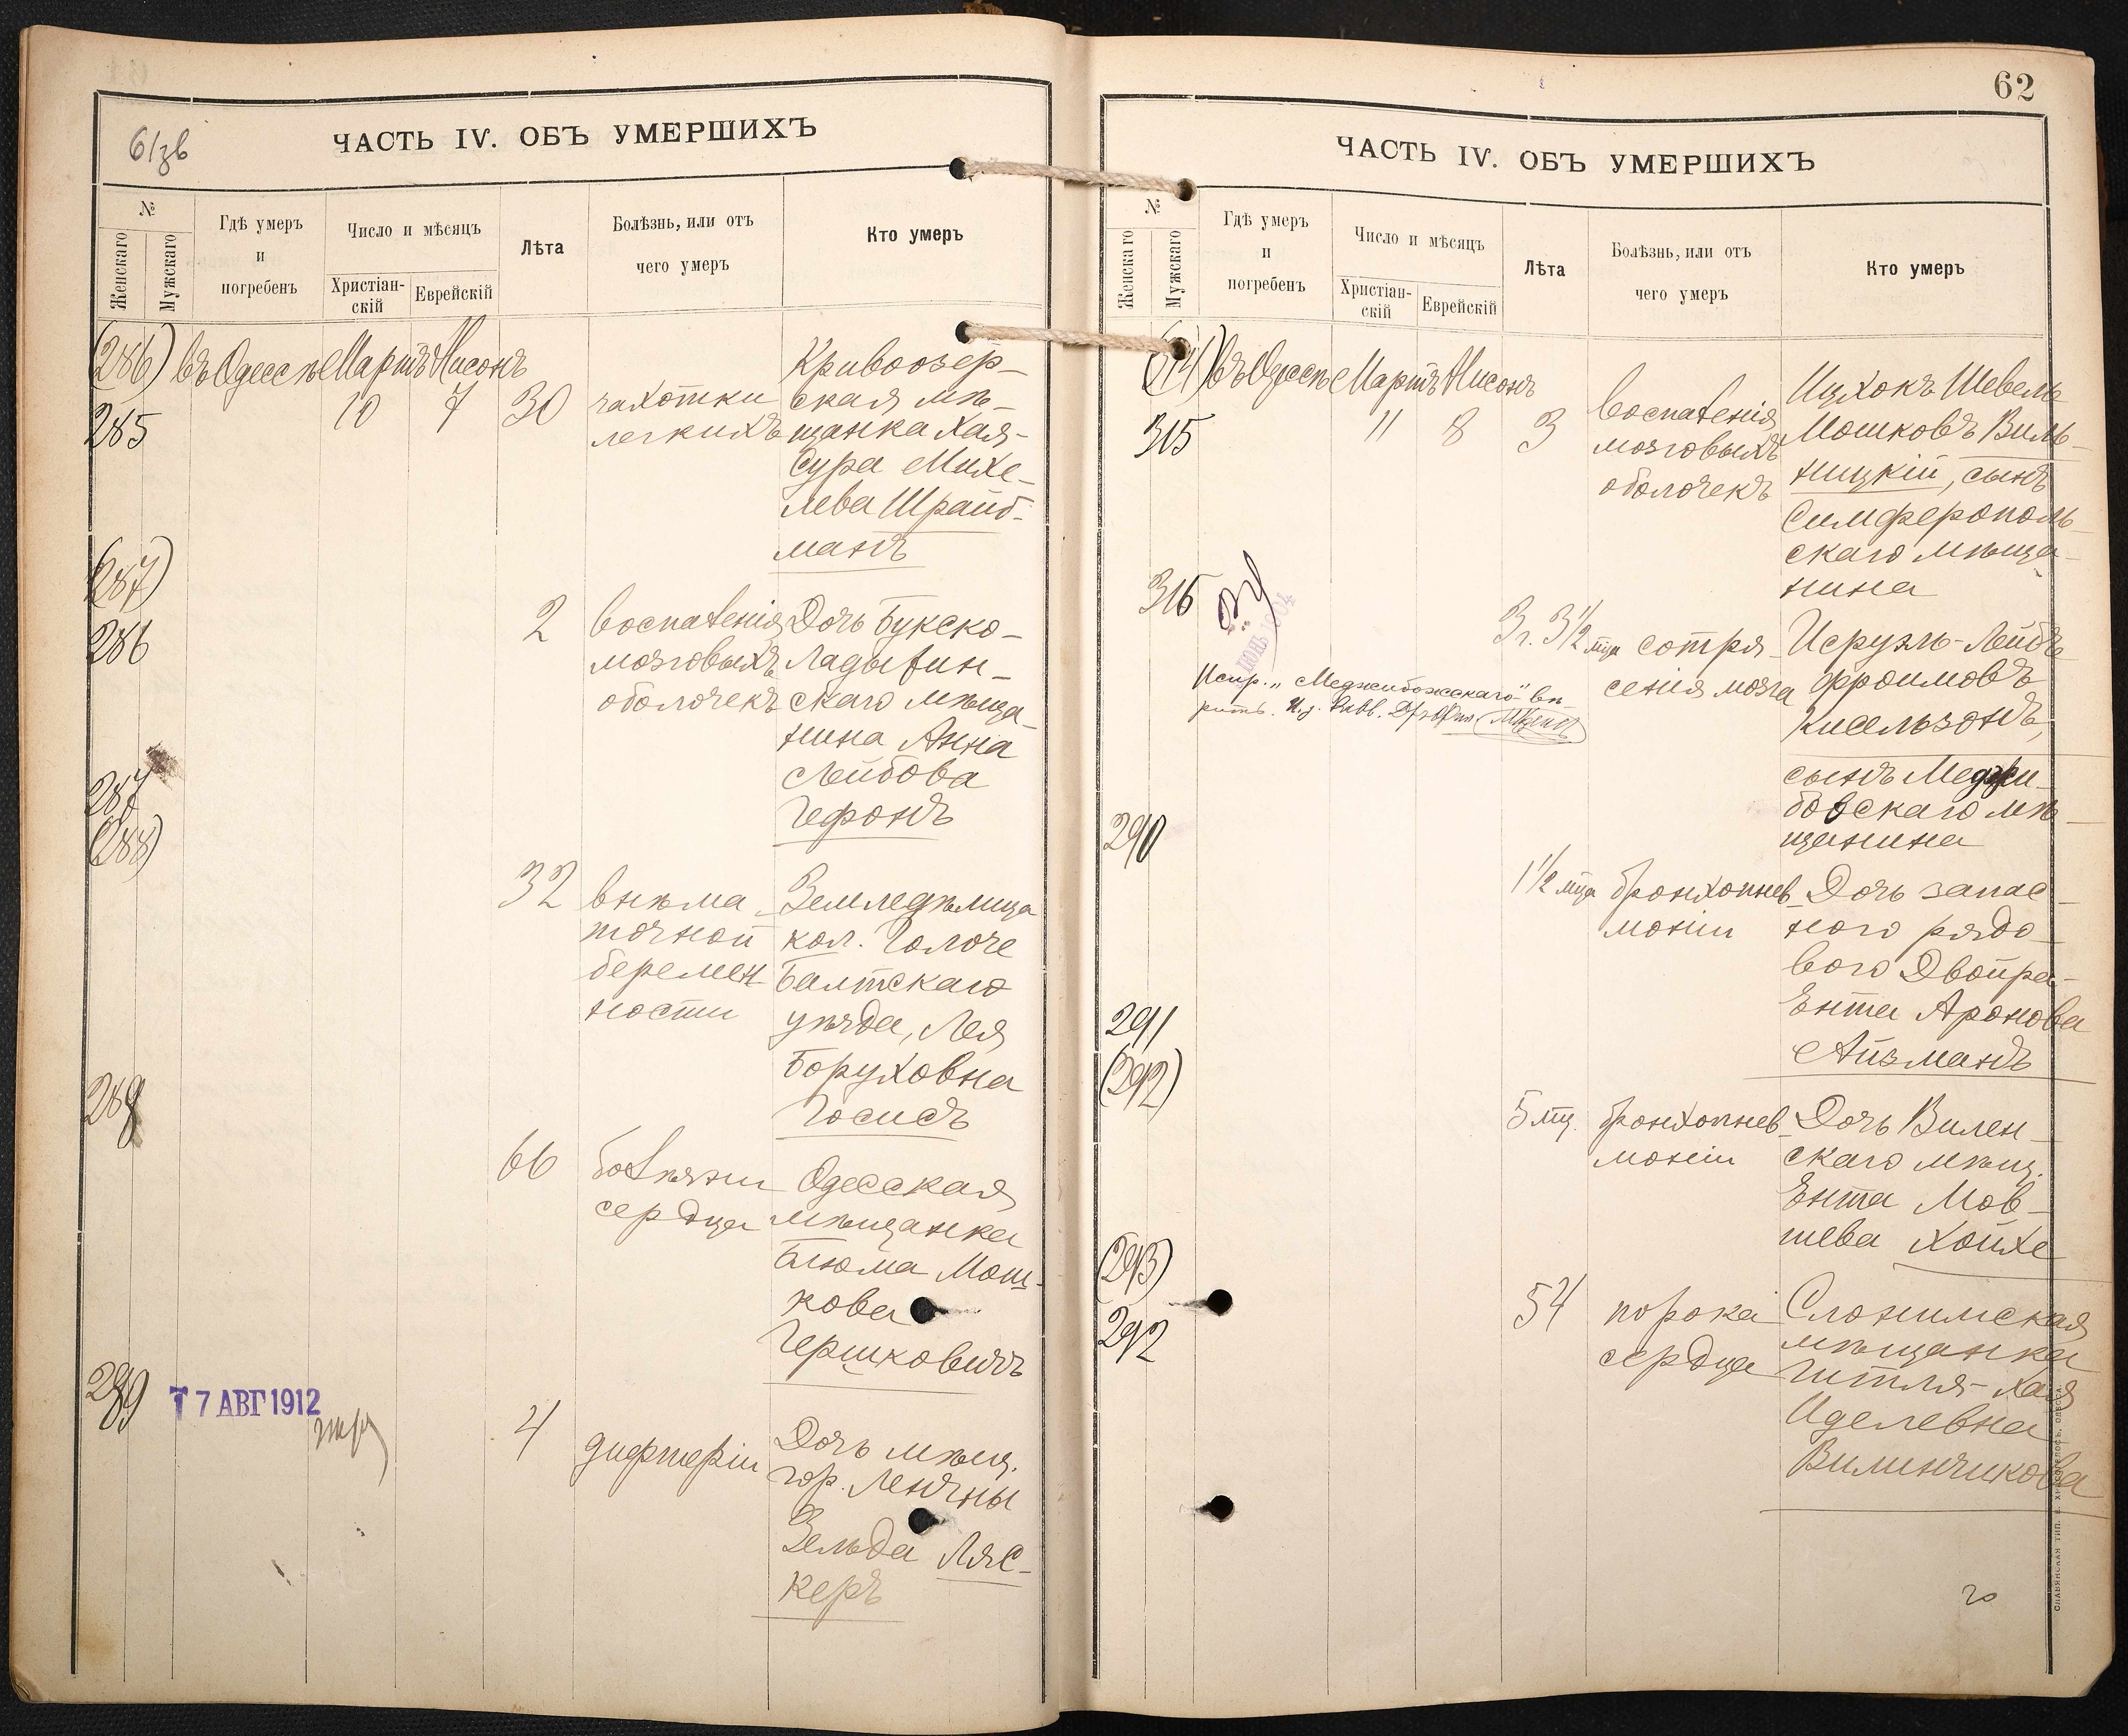 61зв
ЧАСТЬ IV. ОБЪ УМЕРШИХЪ
№
Женскаго
Мужскаго
Гдѣ умеръ
и
погребенъ
Число и мѣсяцъ
Христіан-
скій
Еврейскій
Лѣта
Болѣзнь, или отъ
чего умеръ
Кто умеръ
(286)
285
въ Одессѣ
Мартъ
10
Нисонъ
7
30
чахотки
легкихъ
Кривоозер-
ская мѣ-
щанка Хая-
Сура Михе-
лева Шрайб-
манъ
(287)
286
2
воспаленія
мозговыхъ
оболочекъ
Дочь Букско-
Ладыжин-
скаго мѣща-
нина Анна
Лейбова
Гефонъ
287
(288)
32
внѣма-
точной
беремен-
ности
Земледѣлица
кол. Голоче
Балтскаго
уѣзда, Лея
Боруховна
Госисъ
288
66
болѣзни
сердца
Одесская
мѣщанка
Блюма Мош-
кова
Гершковичъ
289
7 АВГ 1912
4
дифтеріи
Дочь мѣщ.
гор. Ленчны
Зельда Ляс-
керъ
62
ЧАСТЬ IV. ОБЪ УМЕРШИХЪ
№
Женскаго
Мужскаго
Гдѣ умеръ
и
погребенъ
Число и мѣсяцъ
Христіан-
скій
Еврейскій
Лѣта
Болѣзнь, или отъ
чего умеръ
Кто умеръ
(314)
315
въ Одессѣ
Мартъ
11
Нисонъ
8
3
воспаленія
мозговыхъ
оболочекъ
Ицхокъ Шевель
Мошковъ Виль-
ницкій, сынъ
Симферополь-
скаго мѣща-
нина
316
3 г. 3 1/2 мца
сотря-
сенія мозга
Исруэль-Лейбъ
Фроимовъ
Кисельзонъ,
сынъ Меджи-
божскаго мѣ-
щанина
Испр. „Меджибожскаго" вѣ-
рить. И. д. Равв.
290
1 1/2 мца
бронхопнев-
моніи
Дочь запас-
ного рядо-
вого Двойра-
Ента Аронова
Айзманъ
291
(292)
5 мц.
бронхопнев-
моніи
Дочь Вилен-
скаго мѣщ.
Ента Мов-
шева Хойхе
(293)
292
54
порока
сердца
Слонимская
мѣщанка
Гитля-Хая
Иделевна
Вилинчикова